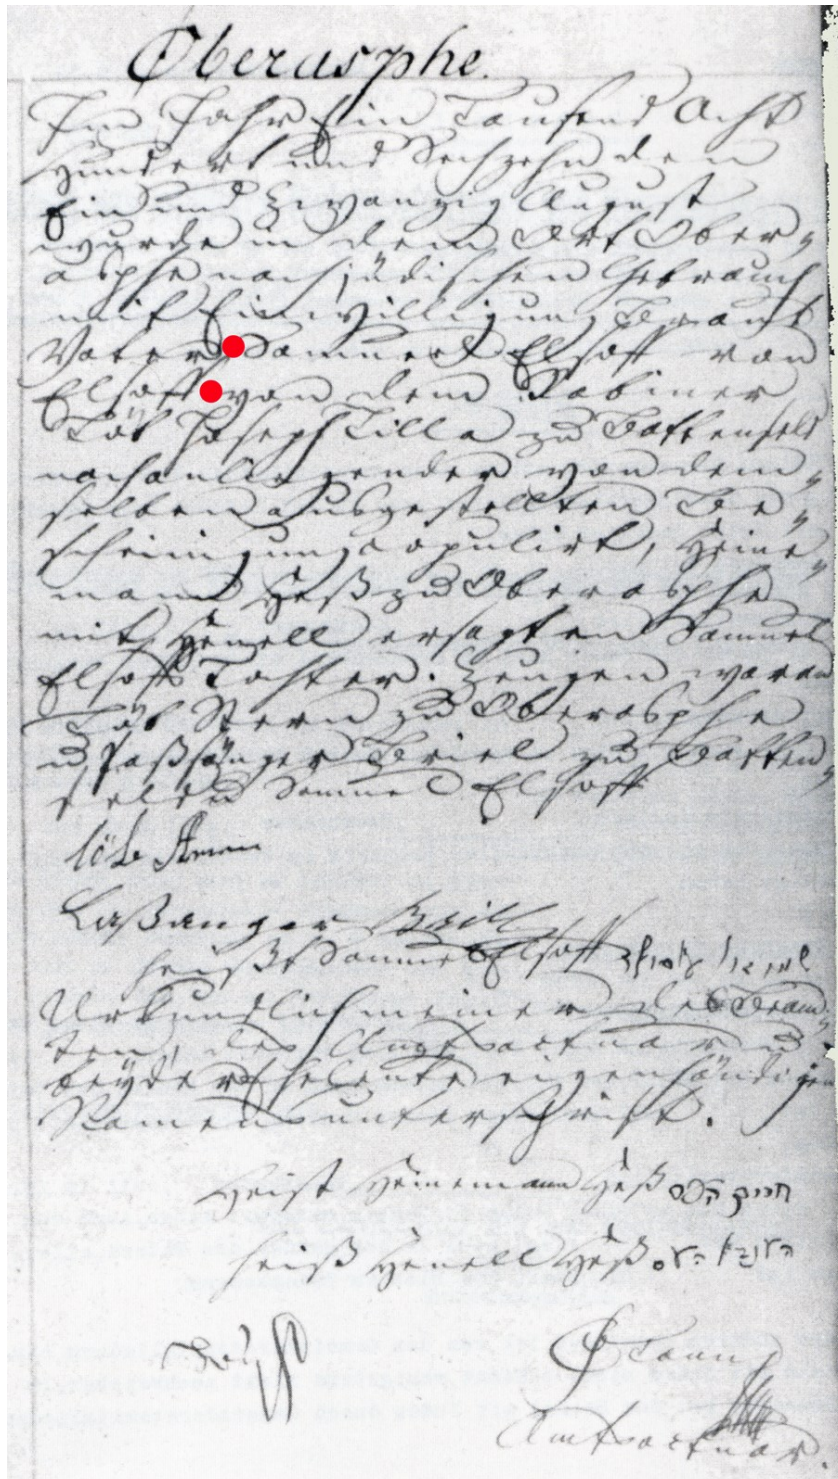 Oberasphe.
Im Jahr Ein Tausend Acht
Hundert und Sechzehn den
Ein und Zwanzig August
wurde in dem Ort Ober„
asphe nach jüdischen Gebrauch
mit Einwilligung Braut
Vater Sammuel Elsoff von
Elsoff von dem Rabiner
Löb Joseph Tilla zu Battenfeld
nach anliegender von dem„
selben ausgestellten Be„
scheinigung copulirt, Heine„
mann Heß zu Oberasphe
mit Henell ersagten Samuel
Elsoff Tochter. Zeugen waren
Löb Stern zu Oberasphe
u Samuel Elsoff
heißt Sammuel Elsoff
Urkundlich meiner des Beam„
ten, des Amtsactuar u
beyder Eheleute eigenhändigen
Namensunterschrift.
Heist Heinemann Heß
heiß Henell Heß
Amtsactuar.